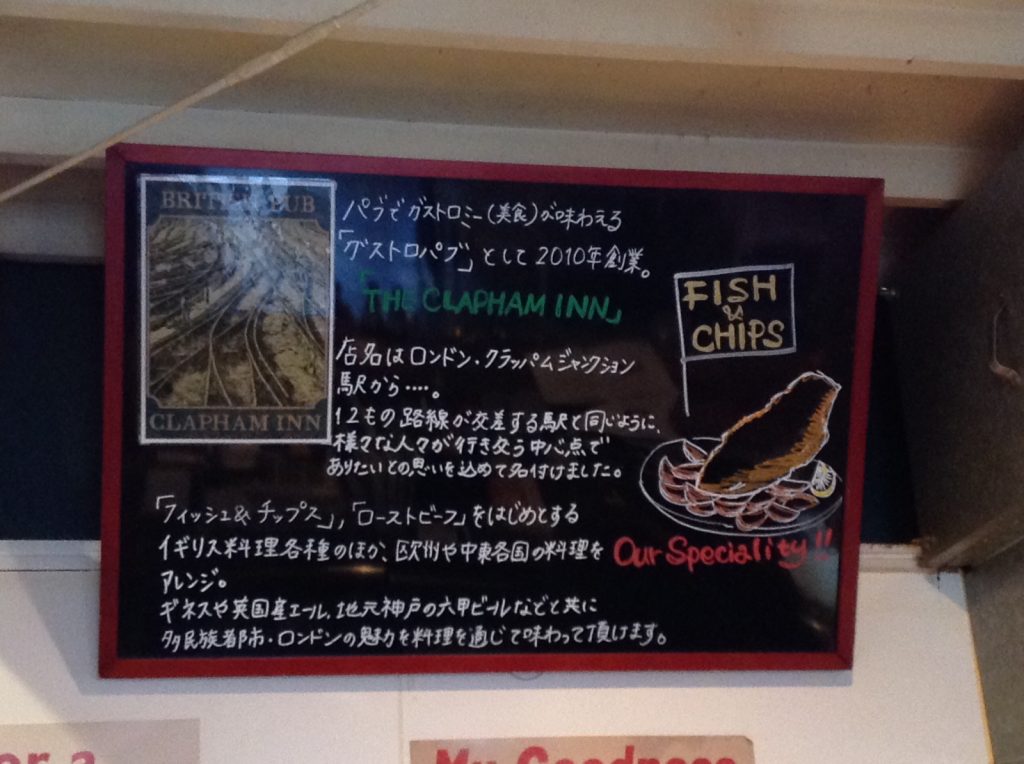 BRITISH PUB
CLAPHAM INN
パブでガストロミー(美食)が味わえる
「ガストロパブ」として2010年創業。
「THE CLAPHAM INN」
店名はロンドン・クラッパムジャンクション
駅から‥‥。
12もの路線が交差する駅と同じように、
様々な人々が行き交う中心点で
ありたいとの思いを込めて名付けました。
FISH
&
CHIPS
「フィッシュ&チップス」,「ローストビーフ」をはじめとする
イギリス料理各種のほか、欧州や中東各国の料理を
アレンジ。
ギネスや英国産エール、地元神戸の六甲ビールなどと共に
多民族都市・ロンドンの魅力を料理を通じて味わって頂けます。
Our Speciality!!
or a
My Goodness